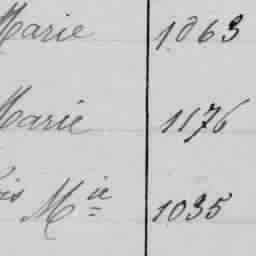 Marie 1063
Marie 1176
is Mie 1035